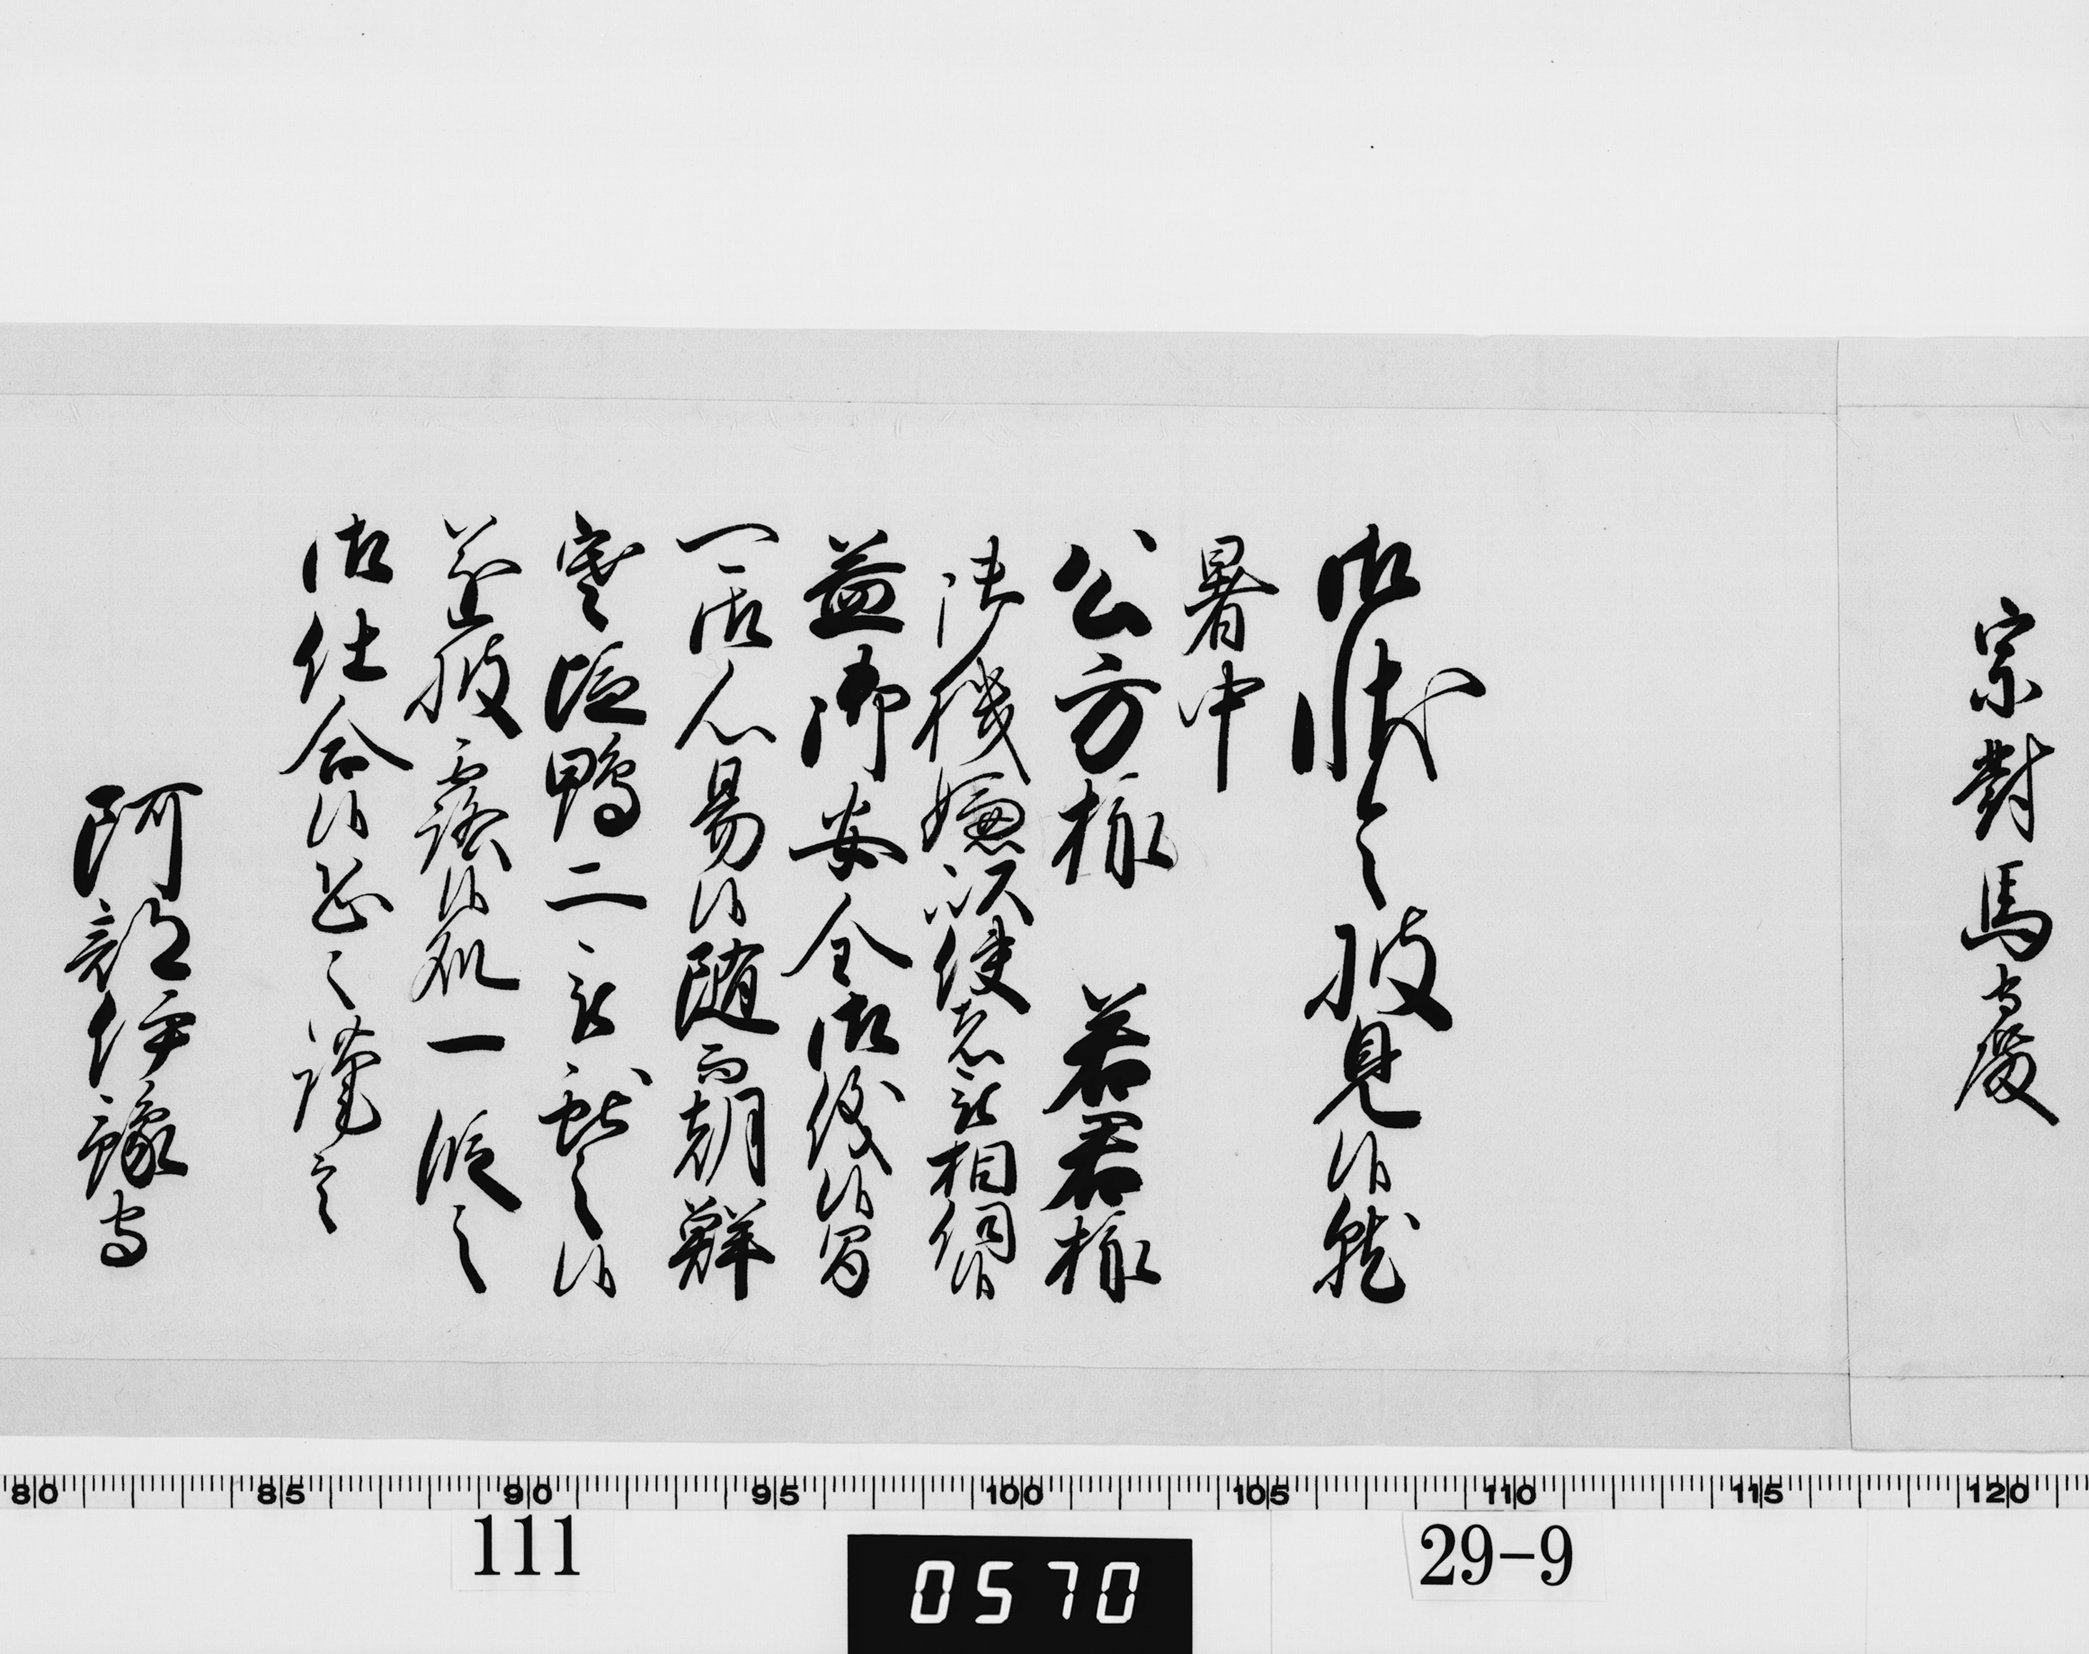 宗對馬守殿
御状令披見候就
暑中
公方様 若君様
御機嫌以使者被相伺候
益御安全御儀候間
可御心易候随而朝鮮
寒塩鴨二被献之候
遂披露候処一段之
御仕合候恐々謹言
阿部伊豫守
80 85 90 95 100 105 110 115 120
111
0570
29-9